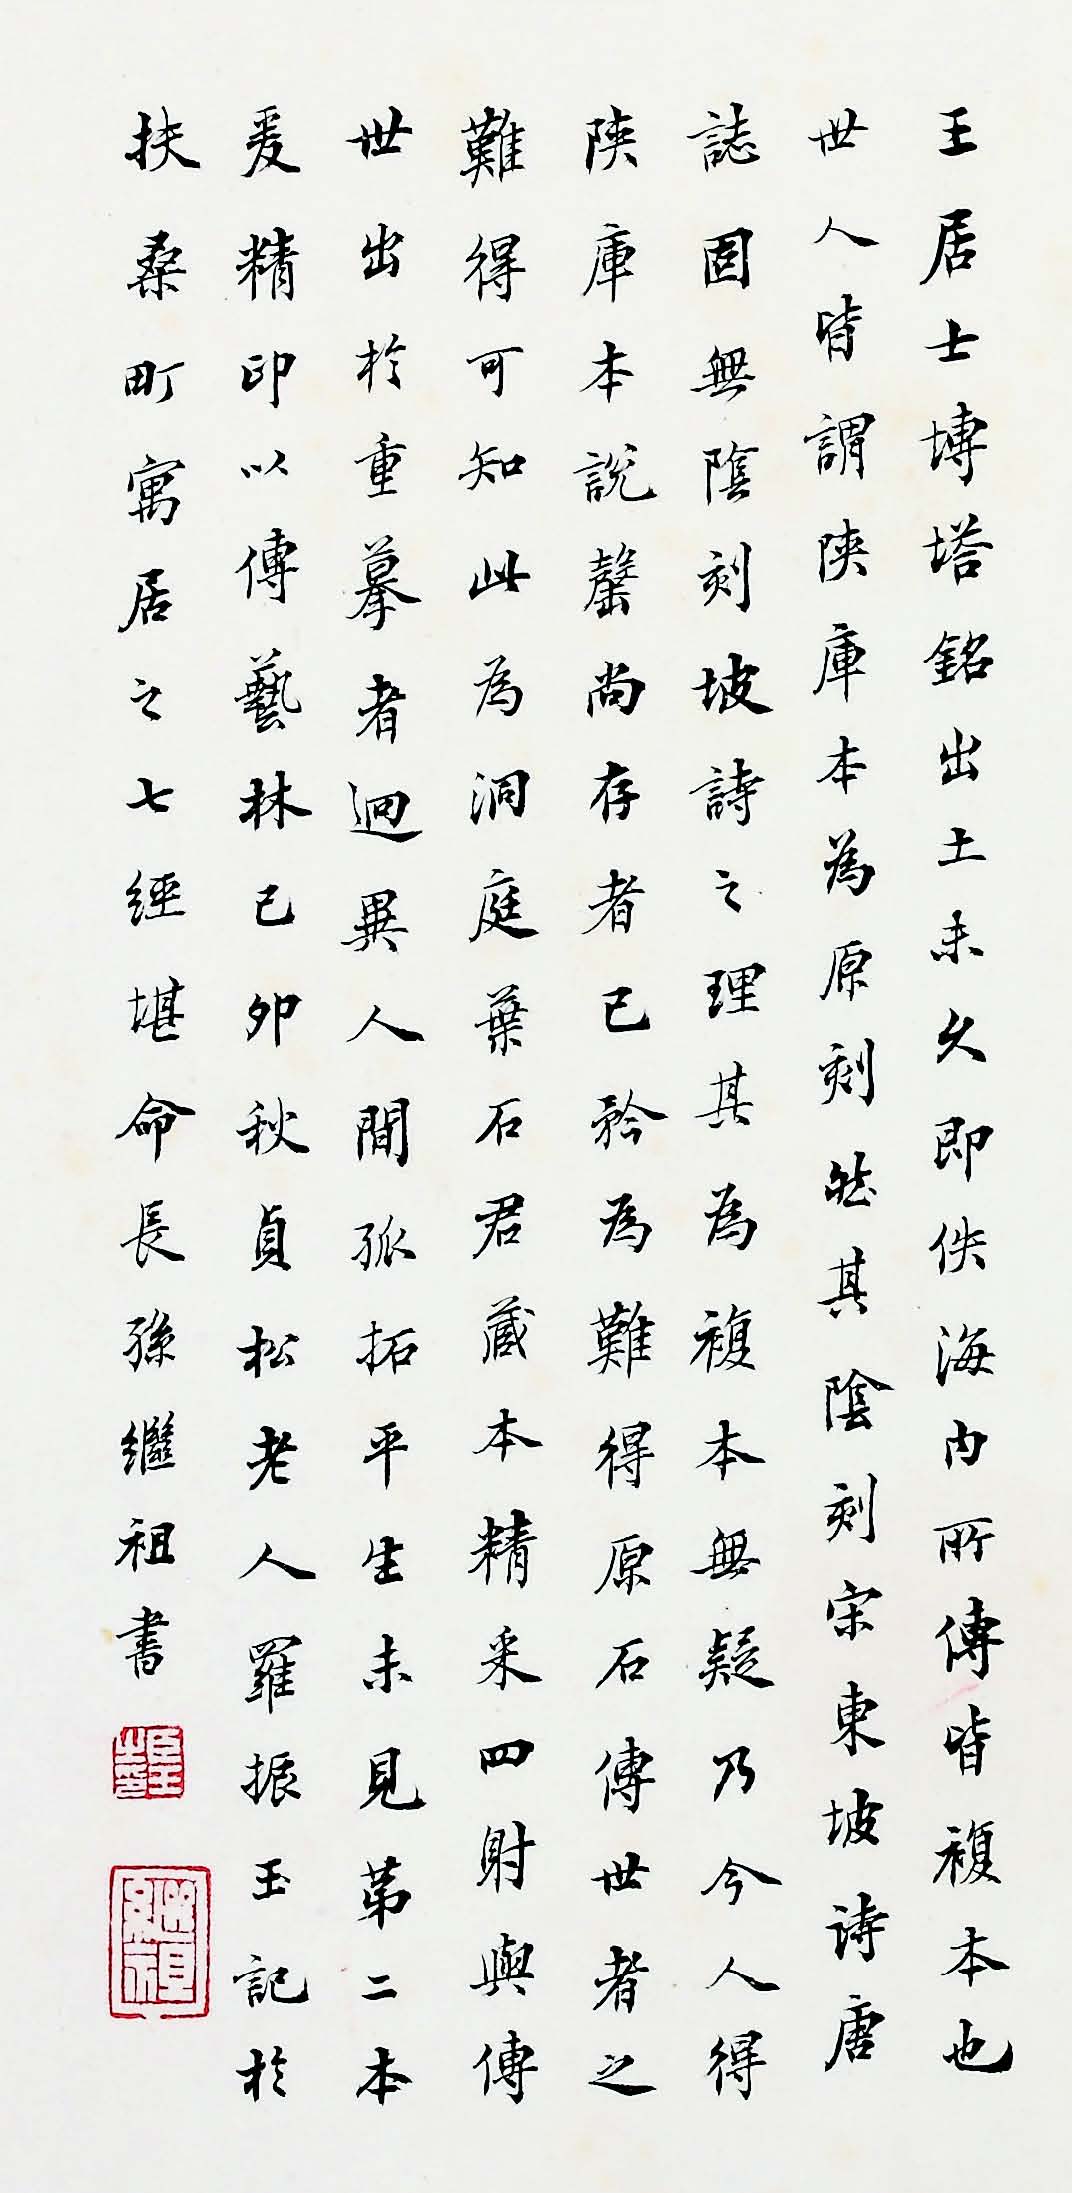 王居士塼塔銘出土未久即佚海内所傳皆複本也
世人皆謂陝庫本為原刻然其陰刻宋東坡诗唐
誌固無陰刻坡詩之理其為複本無疑乃今人得
陝庫本說罄尚存者已矜為難得原石傳世者之
難得可知此為洞庭葉石君藏本精采四射與傳
世出於重摹者迥異人間孤拓平生未見第二本
爰精印以傳藝林己卯秋貞松老人羅振玉記於
扶桑町寓居之七經堪命長孫繼祖書
繼祖